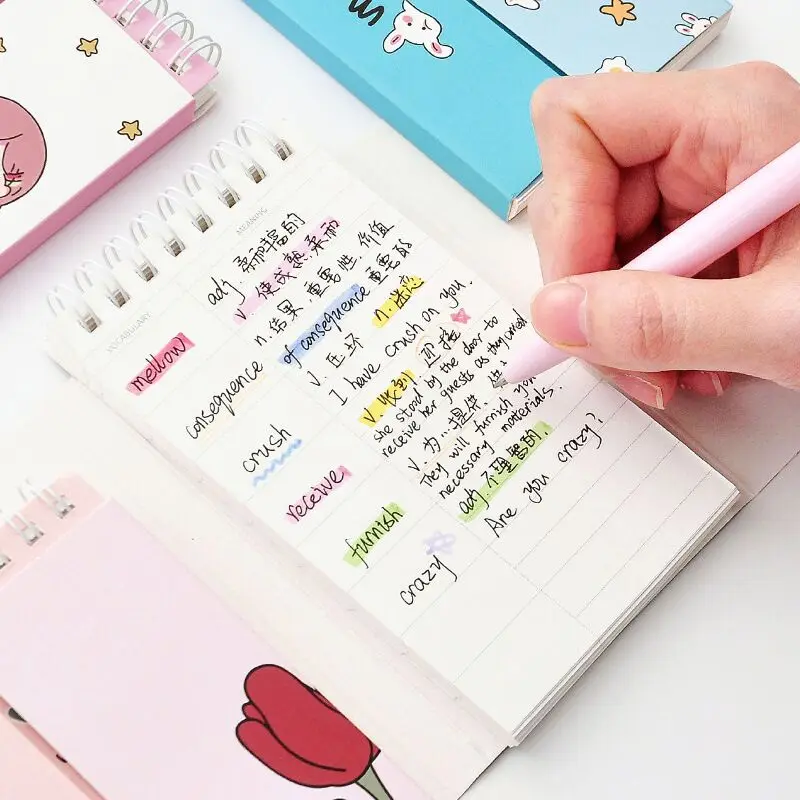 VOCABULARY
MEANING
mellow
adj. 柔和丰富的
v. 使成熟.柔和
consequence
n. 结果 重要性 价值
of consequence 重要的
crush
v. 压坏 n. 迷恋
I have crush on you.
receive
v. 收到
she stood by the door to
receive her guests as they arrived
furnish
v. 为…提供.
They will furnish you
necessary materials.
crazy
adj. 不理智的.
Are you crazy?